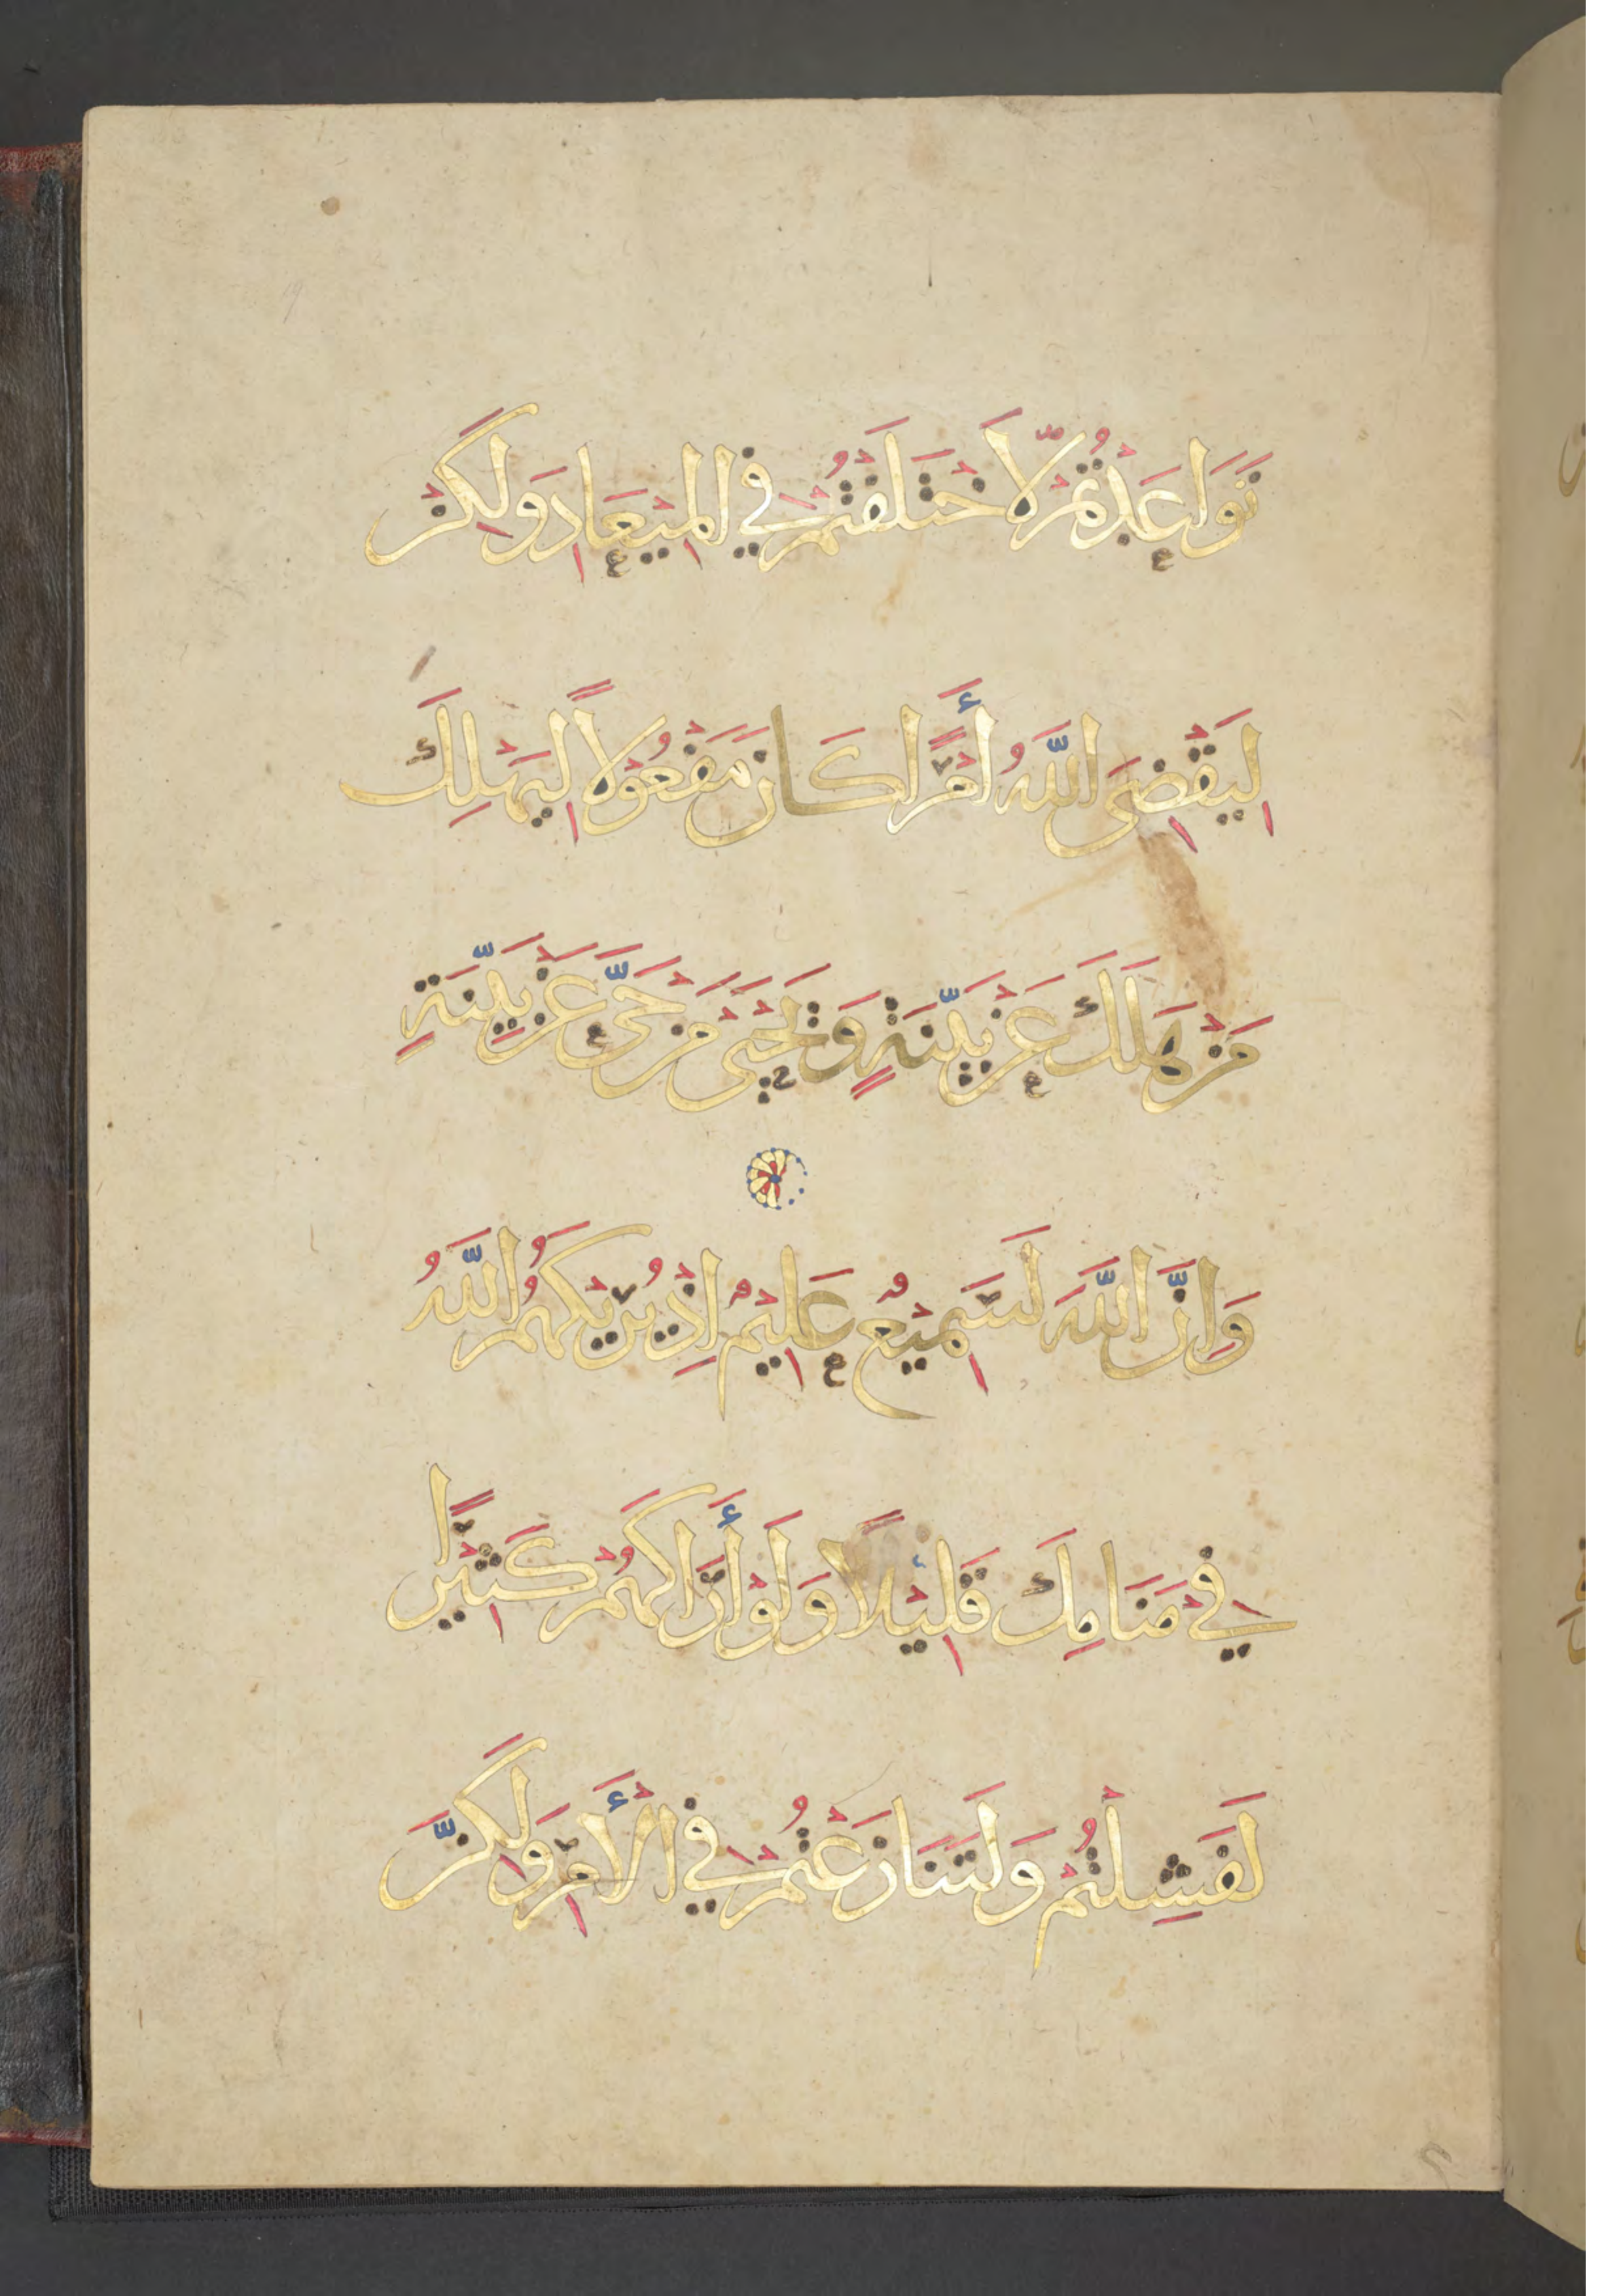 تَوَاعَدْتُمْ لَاخْتَلَفْتُمْ فِي الْمِيعَادِ وَلَكِنْ
لِيَقْضِيَ اللَّهُ أَمْرًا كَانَ مَفْعُوْلًا لِيَهْلِكَ
مَنْ هَلَكَ عَنْ بَيِّنَةٍ وَيَحْيَىٰ مَنْ حَيَّ عَنْ بَيِّنَةٍ
وَإِنَّ اللَّهَ لَسَمِيْعٌ عَلِيْمٌ إِذْ يُرِيْكَهُمُ اللَّهُ
فِيْ مَنَامِكَ قَلِيْلًا وَلَوْ أَرَاكَهُمْ كَثِيْرًا
لَفَشِلْتُمْ وَلَتَنَازَعْتُمْ فِي الْأَمْرِ وَلَكِنَّ